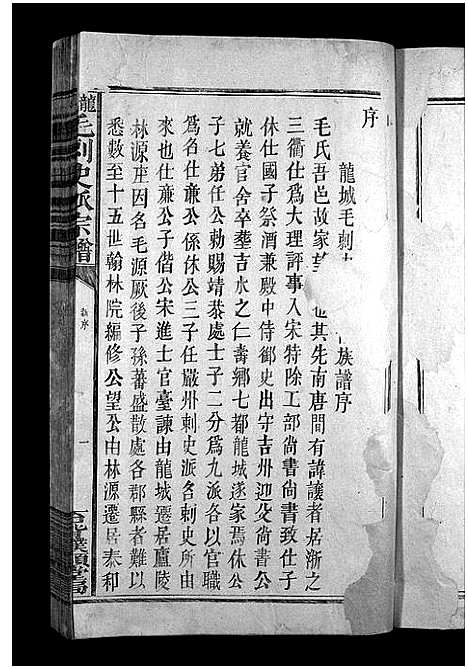 序
龍城毛刺史 族譜序
毛氏吾邑故家望 也其先南唐間有諱護者居浙之
三衢仕爲大理評事入宋特除工部尚書尚書致仕子
休仕國子祭酒兼殿中侍御史出守吉州迎父尚書公
就養官舍卒塟吉水之仁壽鄉七都龍城遂家焉休公
子七弟任公勅賜靖菾處士子二分爲九派各以官職
爲名仕亷公係休公三子任嚴州刺史派名刺史所由
來也仕亷公子偕公宋進士官臺諫由龍城遷居廬陵
林源庄因名毛源厥後子孫蕃盛散處各郡縣者難以
悉數至十五世翰林院編修公望公由林源遷居泰和
龍 毛刺史派宗譜
序
一